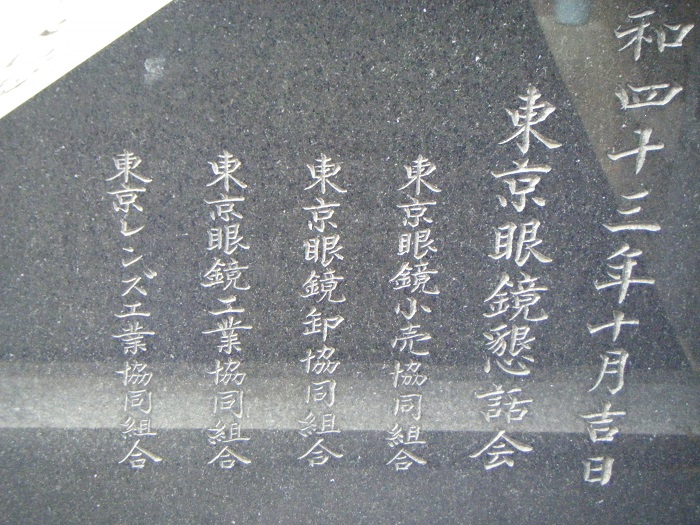 和四十三年十月吉日
東京眼鏡懇話会
東京眼鏡小売協同組合
東京眼鏡卸協同組合
東京眼鏡工業協同組合
東京レンズ工業協同組合